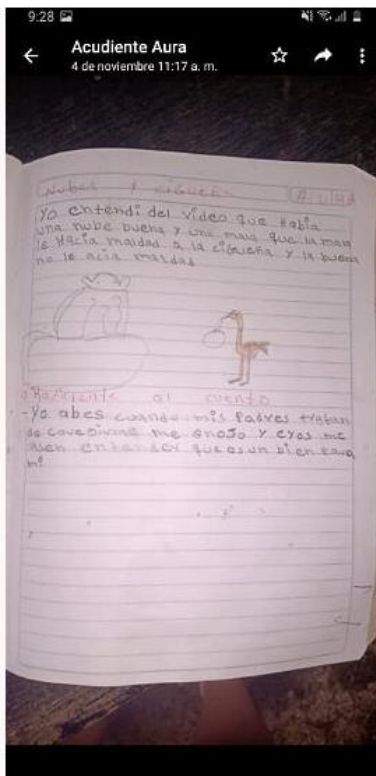 9:28
Acudiente Aura
4 de noviembre 11:17 a. m.
Nubes y cigueña
Yo entendi del video que Había
una nube buena y una mala que la mala
le Hacía maldad a la cigueña y la buena
no le acia maldad
Referente al cuento
-Yo abes cuando mis Padres tratan
de me enojo y eyos me
asen entender que es un bien
mi